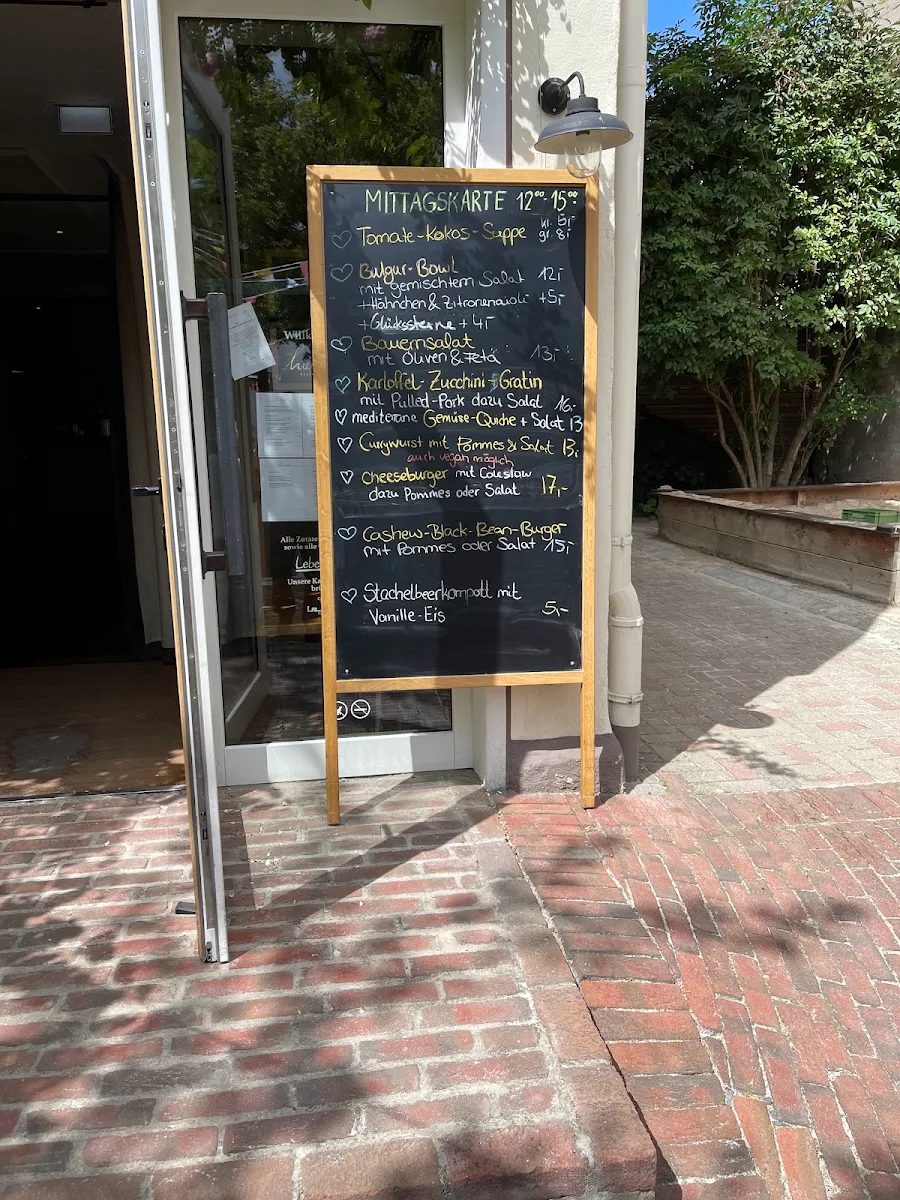 MITTAGSKARTE 12⁰⁰-15⁰⁰
Tomate-Kokos-Suppe kl. 5,- gr. 8,-
Bulgur-Bowl
mit gemischtem Salat 12,-
+Hähnchen & Zitronenaioli +5,-
+ Glückssterne + 4,-
Bauernsalat
mit Oliven & Feta 13,-
Kartoffel-Zucchini-Gratin
mit Pulled-Pork dazu Salat 16,-
mediterane Gemüse-Quiche + Salat 13
Currywurst mit Pommes & Salat 13,-
auch vegan möglich
Cheeseburger mit Coleslaw
dazu Pommes oder Salat 17,-
Cashew-Black-Bean-Burger
mit Pommes oder Salat 15,-
Stachelbeerkompott mit
Vanille-Eis 5,-
Alle Zutate
sowie alle
Lebe
Unsere Ka